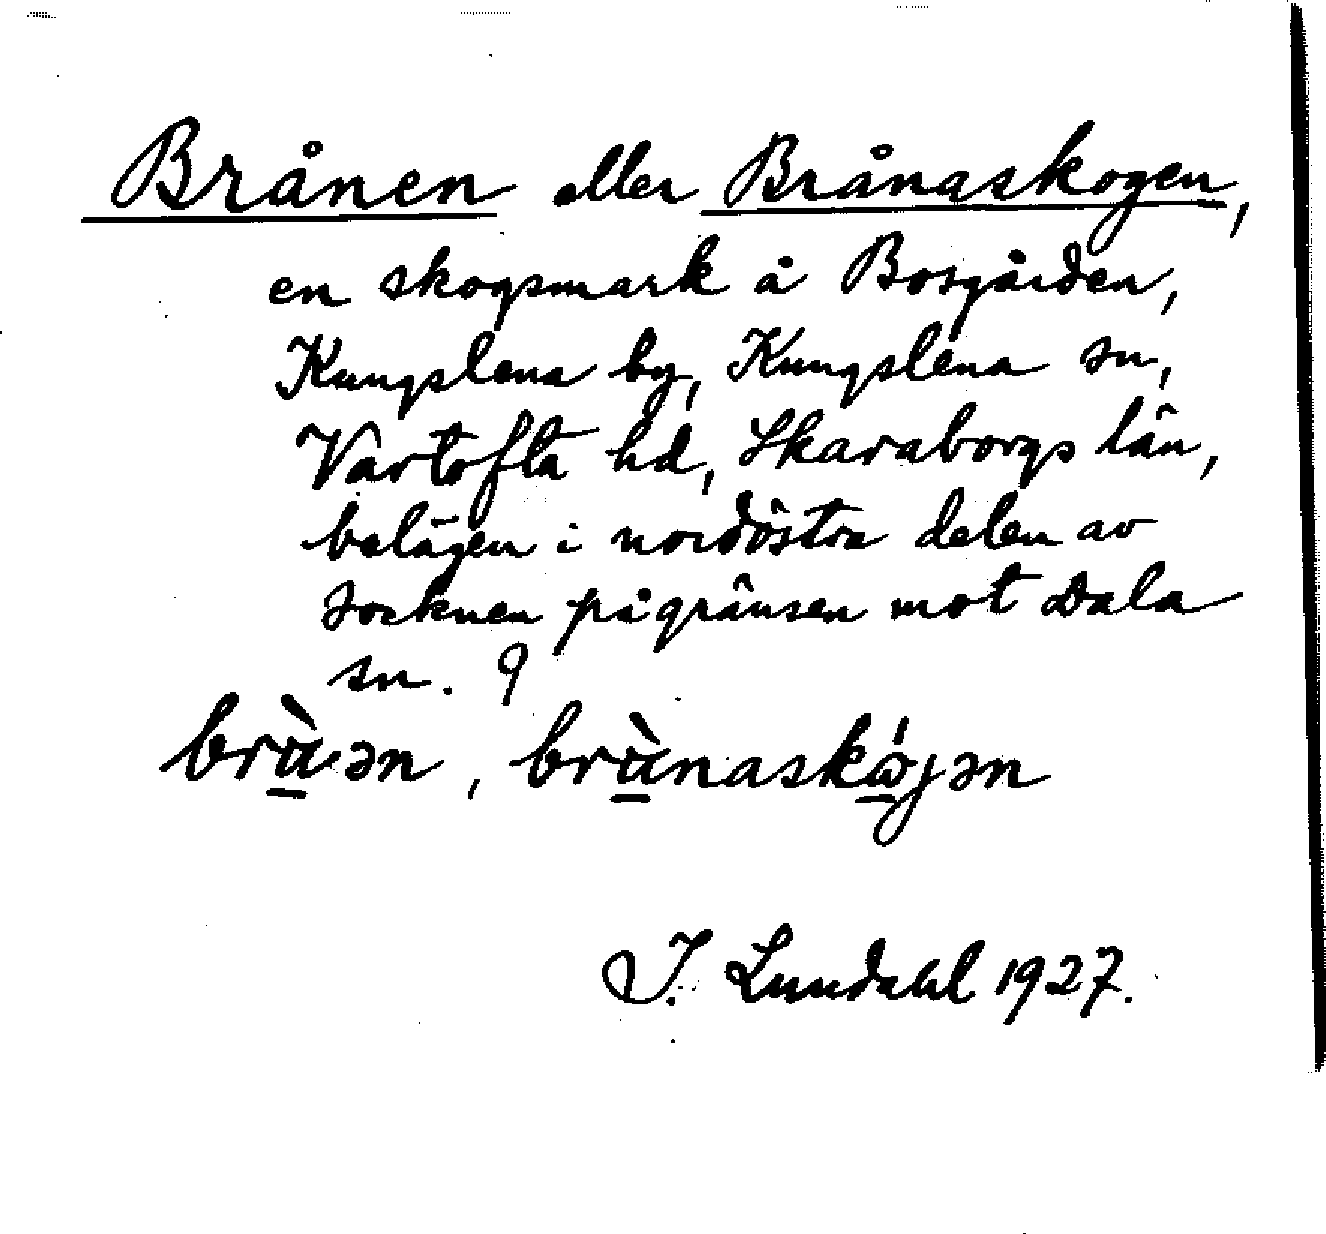 Brånen eller Brånaskogen,
en skogsmark å Bosgården,
Kungslena by, Kungslena sn,
Vartofta hd, Skaraborgs län,
belägen i nordöstra delen av
socknen på gränsen mot Dala
sn. 9
I. Lundahl 1927.